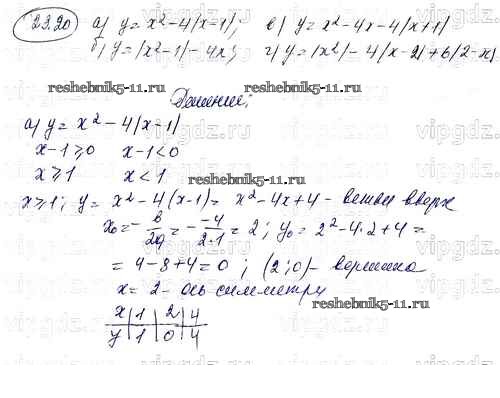 23.20 а) y = x² - 4|x-1|; в) y = x² - 4x - 4|x+1|
б) y = |x² - 1| - 4x; г) y = |x²| - 4|x-2| + 6|2-x|
reshebnik1.ru reshebnik1.ru
Решение:
а) y = x² - 4|x-1|
x-1⩾0 x-1<0
x⩾1 x<1
x⩾1; y = x² - 4(x-1) = x² - 4x + 4 - ветви вверх
x₀ = -b/2a = - -4/2·1 = 2; y₀ = 2² - 4·2 + 4 =
= 4 - 8 + 4 = 0; (2;0) - вершина
x = 2 - ось симметрии
reshebnik1.ru
x | 1 | 2 | 4
y | 1 | 0 | 4
vipgdz.ru